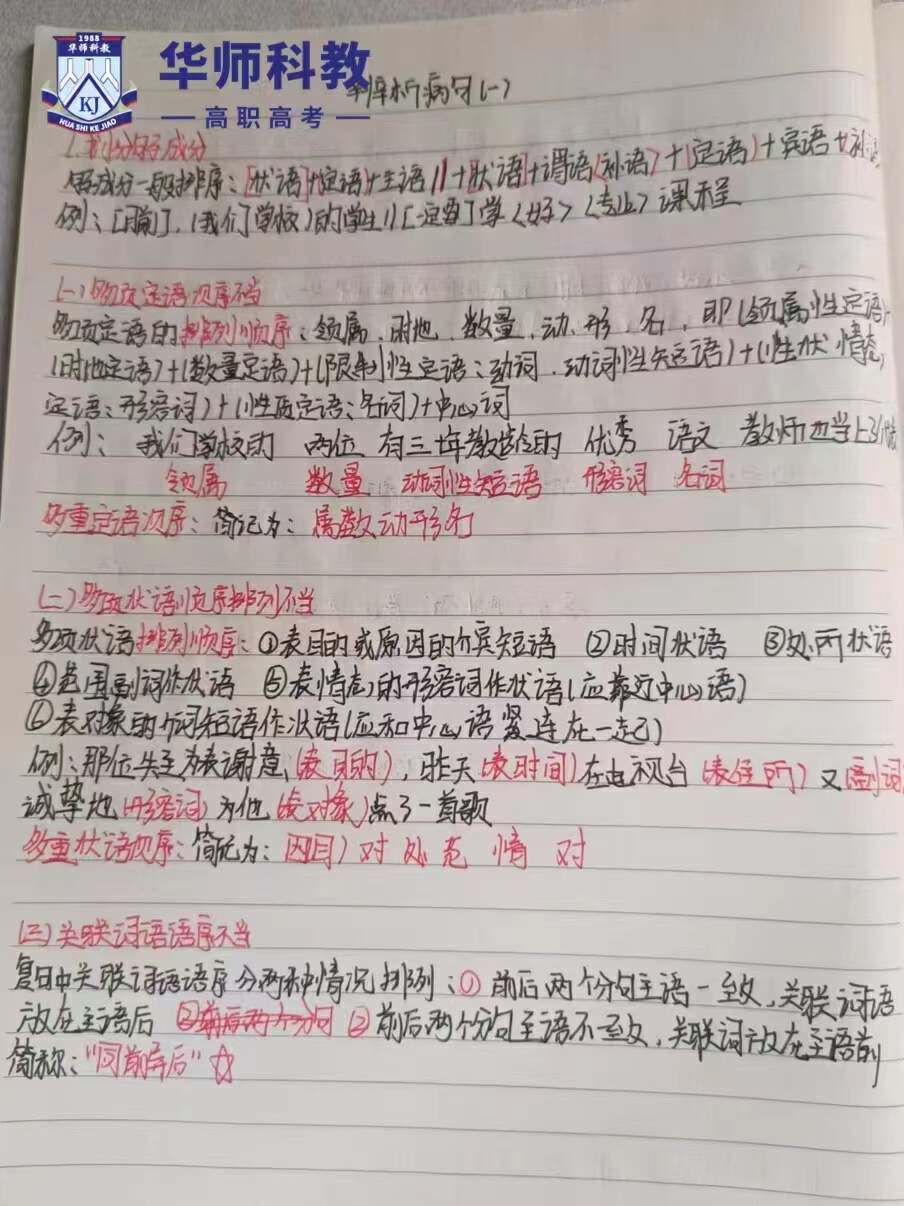 1988
华师科教
KJ
HUA SHI KE JIAO
华师科教
高职高考
辨析病句(一)
1.划分好成分
句子成分一般排序：[状语]+定语+主语‖+[状语]+谓语〈补语〉+(定语)+宾语+补语
例：[目前]，(我们学校)的学生‖[一定要]学〈好〉〈专业〉课程
(一)多项定语次序不当
多项定语的排列顺序：领属、时地、数量、动、形、名，即(领属性定语)
(时地定语)+(数量定语)+(限制性定语：动词、动词性短语)+(性状 情态
定语：形容词)+(性质定语：名词)+中心词
例：我们学校的 两位 有三十年教龄的 优秀 语文 教师也当上了
领属 数量 动词性短语 形容词 名词
多重定语次序：简记为：属数动形名
(二)多项状语顺序排列不当
多项状语排列顺序：①表目的或原因的介宾短语 ②时间状语 ③处所状语
④范围副词作状语 ⑤表情态的形容词作状语(应靠近中心语)
⑥表对象的介词短语作状语(应和中心语紧连在一起)
例：那位失主为表谢意(表目的)，昨天(表时间)在电视台(表住所)又(副词)
诚挚地(形容词)为他(表对象)点了一首歌
多重状语顺序：简记为：因(目)对 处 范 情 对
(三)关联词语语序不当
复句中关联词语语序分两种情况排列：①前后两个分句主语一致，关联词语
放在主语后 ②前后两个分句 ②前后两个分句主语不一致，关联词放在主语前
简称：“同前异后”☆